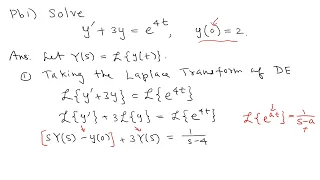 Pb1) Solve
y' + 3y = e^{4t}, y(0) = 2.
Ans. Let Y(s) = ℒ{y(t)}.
① Taking the Laplace Transform of DE
ℒ{y' + 3y} = ℒ{e^{4t}}
ℒ{y'} + 3ℒ{y} = ℒ{e^{4t}}
[sY(s) - y(0)] + 3Y(s) = 1/(s-4)
ℒ{e^{at}} = 1/(s-a)